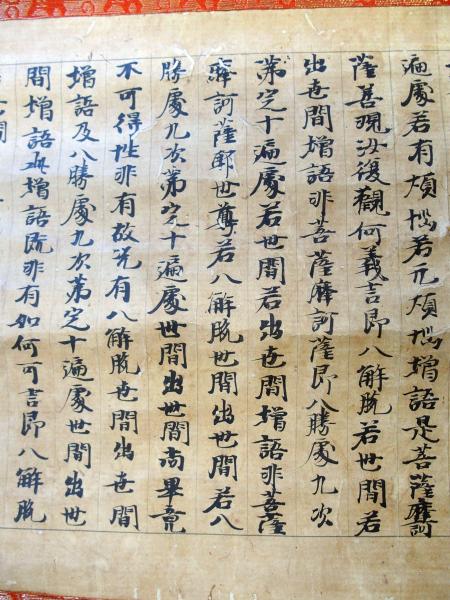 遍處若有煩惱若无煩惱增語是菩薩摩訶
薩善現汝復觀何義言即八解脫若世間若
出世間增語非菩薩摩訶薩即八勝處九次
第定十遍處若世間若出世間增語非菩薩
摩訶薩耶世尊若八解脫世間出世間若八
勝處九次第定十遍處世間出世間尚畢竟
不可得性非有故況有八解脫世間出世間
增語及八勝處九次第定十遍處世間出世
間增語此增語既非有如何可言即八解脫